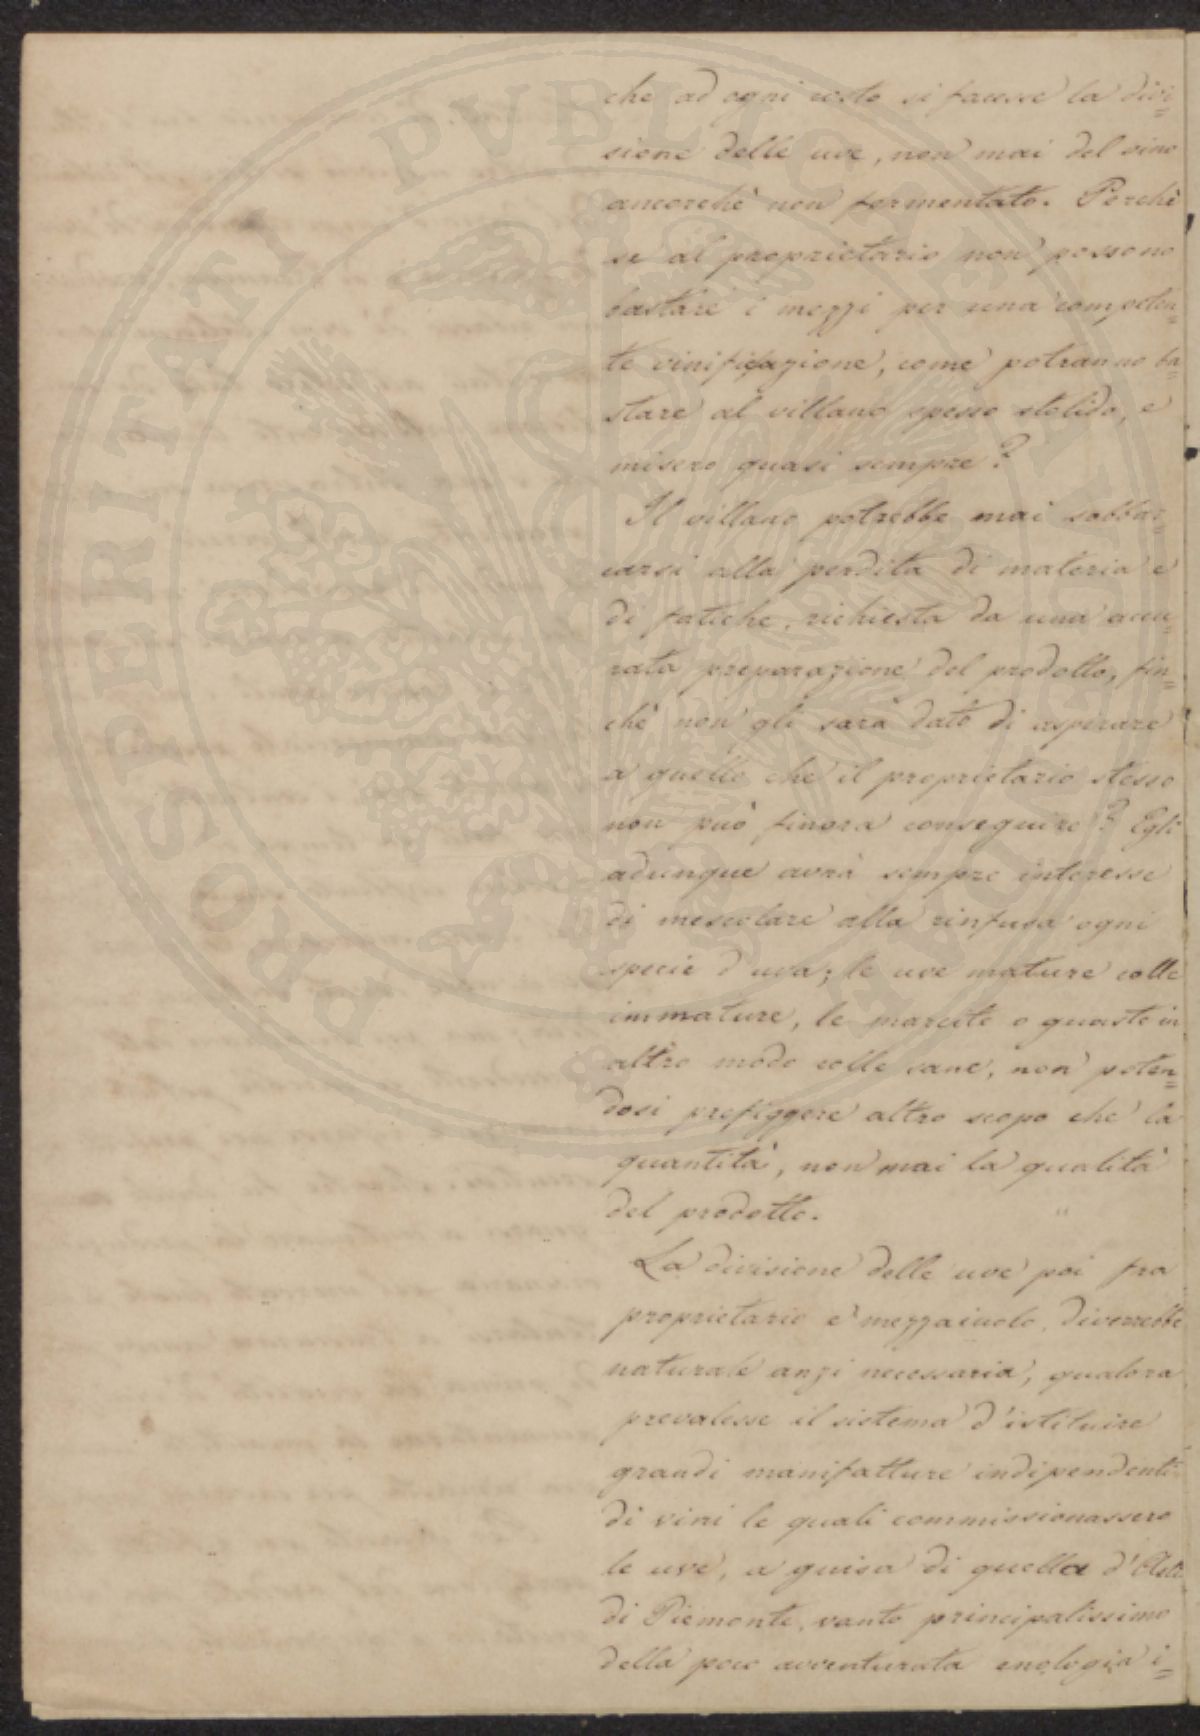 che ad ogni costo si facesse la divi=
sione delle uve, non mai del vino
ancorchè non fermentato. Perchè
se al proprietario non possono
bastare i mezzi per una competen=
te vinificazione, come potranno ba=
stare al villano spesso stolido, e
misero quasi sempre?
Il villano potrebbe mai sobbar=
carsi alla perdita di materia e
di fatiche, richiesta da una accu=
rata preparazione del prodotto, fin=
chè non gli sarà dato di aspirare
a quello che il proprietario stesso
non può finora conseguire? Egli
adunque avrà sempre interesse
di mescolare alla rinfusa ogni
specie d'uva; le uve mature colle
immature, le marcite o guaste in
altro modo colle sane, non poten=
dosi prefiggere altro scopo che la
quantità, non mai la qualità
del prodotto.
La divisione delle uve poi fra
proprietario e mezzaiuolo, diverrebbe
naturale anzi necessaria, qualora
prevalesse il sistema d'istituire
grandi manifatture indipendenti
di vini le quali commissionassero
le uve, a guisa di quella d'Asti
di Piemonte, vanto principalissimo
della poco avventurata enologia i=
PROSPERITATI PVBLICAE AVGENDAE